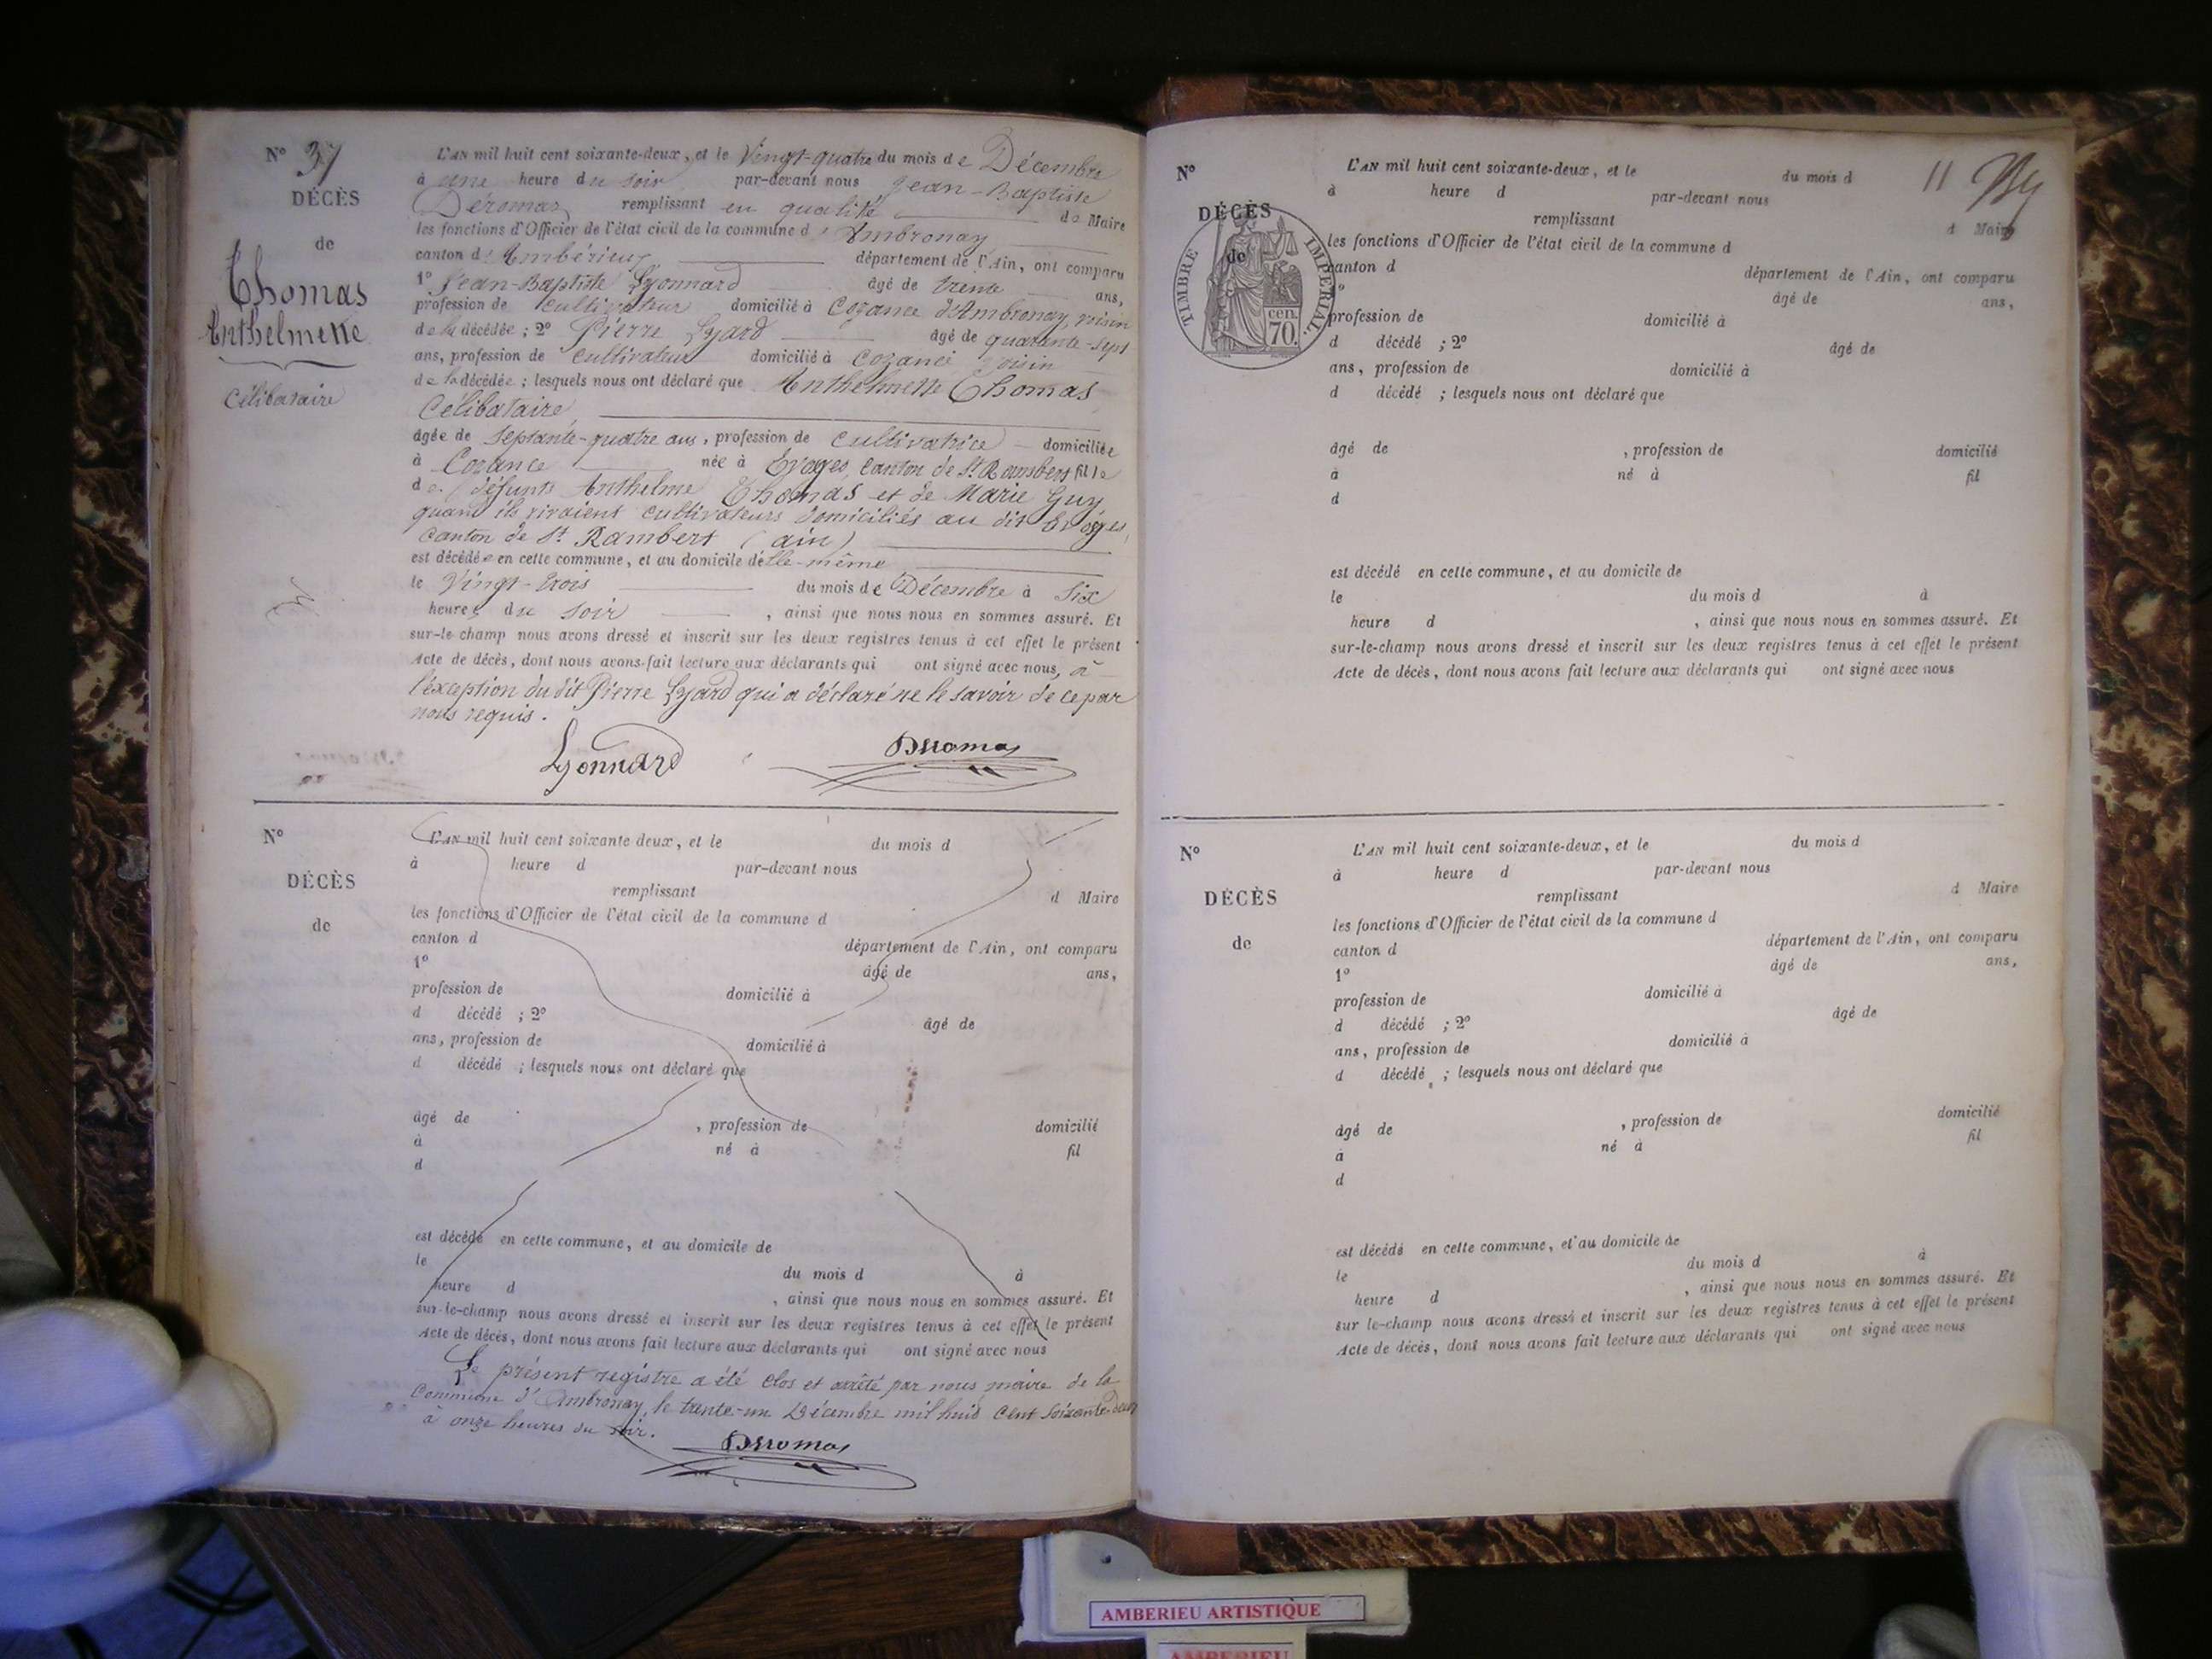 N° 37
DÉCÈS
de
Thomas
Anthelmette
Célibataire
L'AN mil huit cent soixante-deux, et le Vingt-quatre du mois de Décembre
à une heure du soir par-devant nous Jean-Baptiste
Deromas remplissant en qualité de Maire
les fonctions d'Officier de l'état civil de la commune d'Ambronay
canton d'Ambérieux département de l'Ain, ont comparu
1° Jean-Baptiste Lyonnard âgé de trente ans,
profession de cultivateur domicilié à Cozance d'Ambronay, voisin
de la décédée ; 2° Pierre Lyard âgé de quarante-sept
ans, profession de cultivateur domicilié à Cozance voisin
de la décédée ; lesquels nous ont déclaré que Anthelmette Thomas
Célibataire,
âgée de Septante-quatre ans, profession de cultivatrice domiciliée
à Cozance née à Evoges, canton de St Rambert fille
de défunts Anthelme Thomas et de Marie Guy,
quand ils vivaient cultivateurs domiciliés au dit Evoges,
canton de St Rambert (ain)
est décédée en cette commune, et au domicile d'elle-même
le Vingt-trois du mois de Décembre à Six
heures du soir, ainsi que nous nous en sommes assuré. Et
sur-le-champ nous avons dressé et inscrit sur les deux registres tenus à cet effet le présent
Acte de décès, dont nous avons fait lecture aux déclarants qui ont signé avec nous, à
l'exception du dit Pierre Lyard qui a déclaré ne le savoir de ce par
nous requis.
Lyonnard Deromas
N°
DÉCÈS
de
L'AN mil huit cent soixante deux, et le du mois d
à heure d par-devant nous
remplissant d Maire
les fonctions d'Officier de l'état civil de la commune d
canton d département de l'Ain, ont comparu
1° âgé de ans,
profession de domicilié à
d décédé ; 2° âgé de
ans, profession de domicilié à
d décédé ; lesquels nous ont déclaré que
âgé de , profession de domicilié
à né à fil
d
est décédé en cette commune, et au domicile de
le du mois d à
heure d , ainsi que nous nous en sommes assuré. Et
sur-le-champ nous avons dressé et inscrit sur les deux registres tenus à cet effet le présent
Acte de décès, dont nous avons fait lecture aux déclarants qui ont signé avec nous
Le présent registre a été clos et arrêté par nous maire de la
Commune d'Ambronay, le trente-un Décembre mil huit cent soixante-deux
à onze heures du soir.
Deromas
11
N°
DÉCÈS
de
TIMBRE IMPÉRIAL.
cen.
70.
L'AN mil huit cent soixante-deux, et le du mois d
à heure d par-devant nous
remplissant d Maire
les fonctions d'Officier de l'état civil de la commune d
canton d département de l'Ain, ont comparu
° âgé de ans,
profession de domicilié à
d décédé ; 2° âgé de
ans, profession de domicilié à
d décédé ; lesquels nous ont déclaré que
âgé de , profession de domicilié
à né à fil
d
est décédé en cette commune, et au domicile de
le du mois d à
heure d , ainsi que nous nous en sommes assuré. Et
sur-le-champ nous avons dressé et inscrit sur les deux registres tenus à cet effet le présent
Acte de décès, dont nous avons fait lecture aux déclarants qui ont signé avec nous
N°
DÉCÈS
de
L'AN mil huit cent soixante-deux, et le du mois d
à heure d par-devant nous
remplissant d Maire
les fonctions d'Officier de l'état civil de la commune d
canton d département de l'Ain, ont comparu
1° âgé de ans,
profession de domicilié à
d décédé ; 2° âgé de
ans, profession de domicilié à
d décédé ; lesquels nous ont déclaré que
âgé de , profession de domicilié
à né à fil
d
est décédé en cette commune, et au domicile de
le du mois d à
heure d , ainsi que nous nous en sommes assuré. Et
sur le-champ nous avons dressé et inscrit sur les deux registres tenus à cet effet le présent
Acte de décès, dont nous avons fait lecture aux déclarants qui ont signé avec nous
AMBERIEU ARTISTIQUE
AMBERIEU